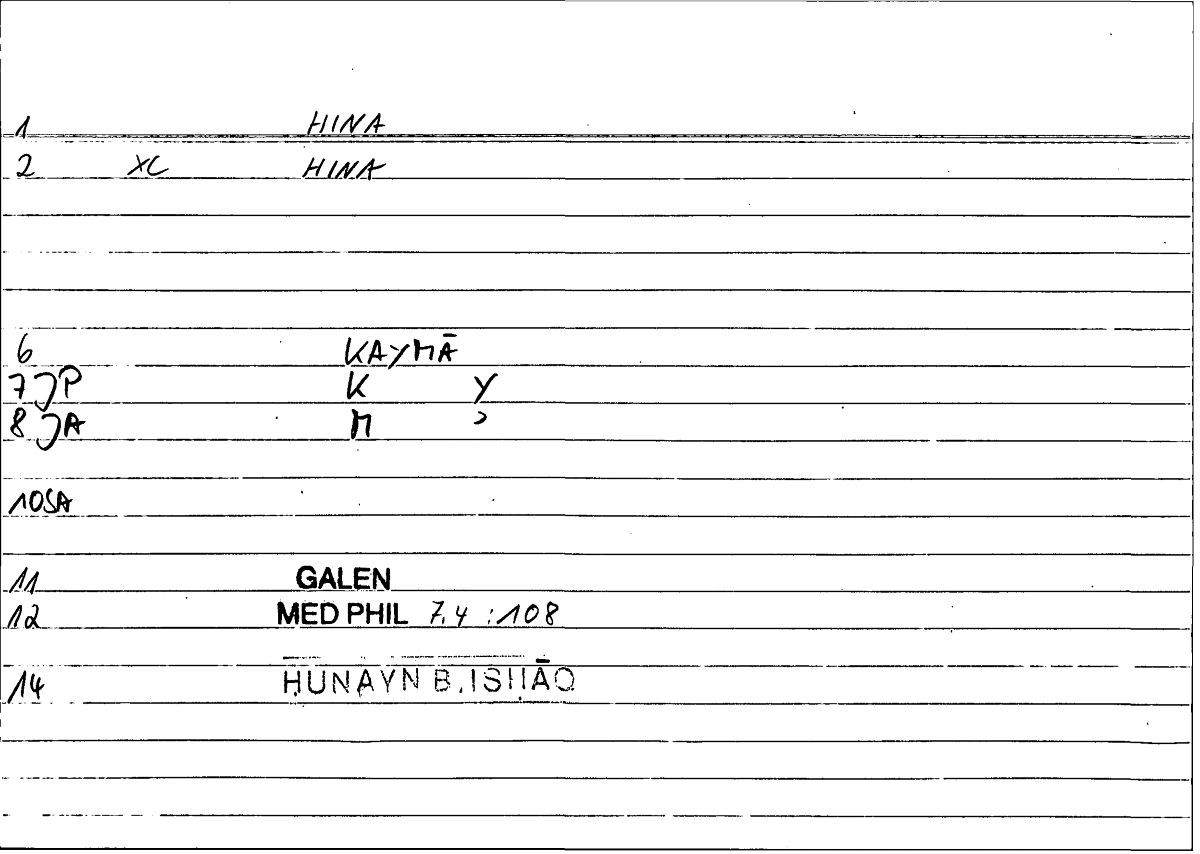 1 HINA
2 XC HINA
6 KAYMĀ
7 JP K Y
8 JA M ʾ
10 SA
11 GALEN
12 MED PHIL 7.4 :108
14 ḤUNAYN B. ISḤĀQ